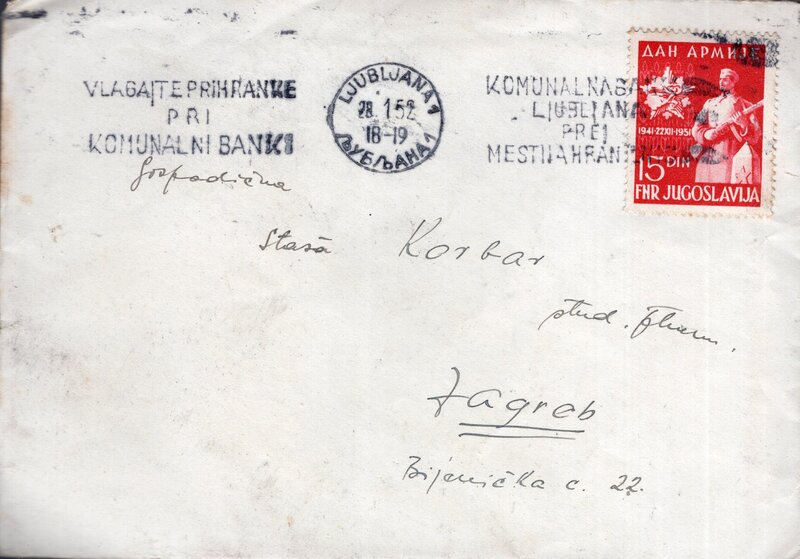 VLAGAJTE PRIHRANKE
PRI
KOMUNALNI BANKI
LJUBLJANA 1
28. 1.52
18-19
ЉУБЉАНА 1
KOMUNALNA
LJUBLJANA
PREJ
MESTNA
ДАН АРМИЈЕ
1941-22XII-1951
15 DIN
FNR JUGOSLAVIJA
Gospodična
Staša Korbar
stud. pharm.
Zagreb
Bijenička c. 22.